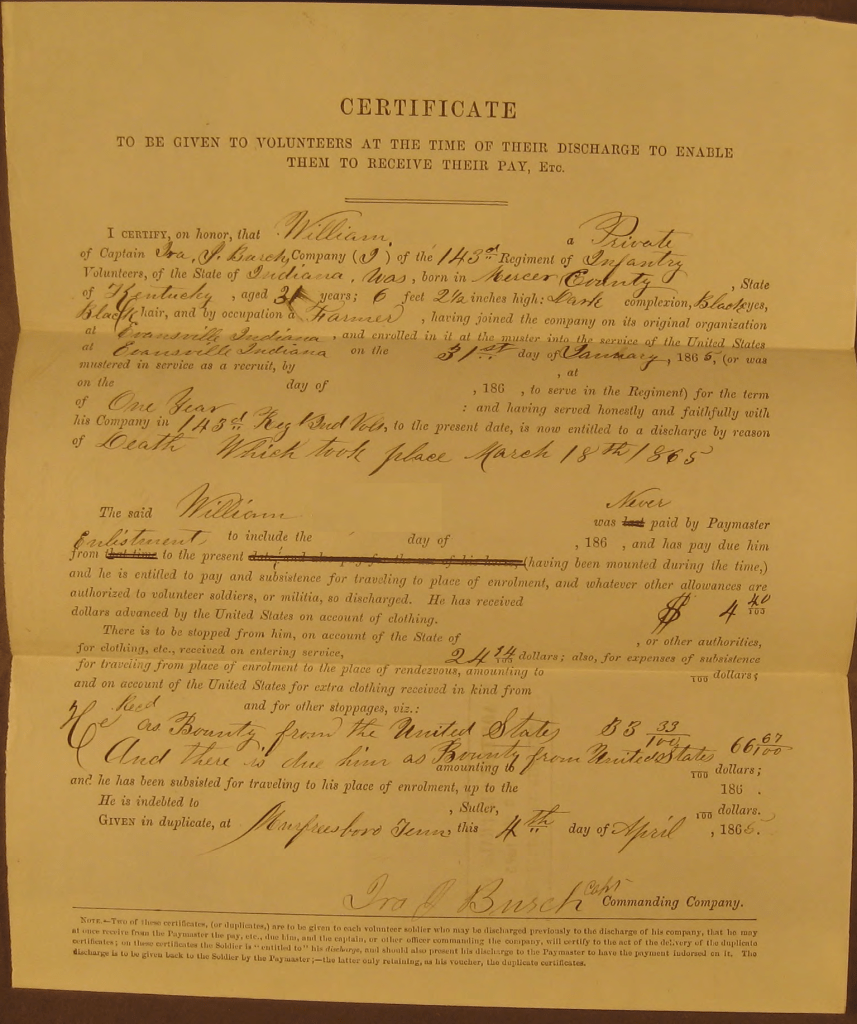 CERTIFICATE
TO BE GIVEN TO VOLUNTEERS AT THE TIME OF THEIR DISCHARGE TO ENABLE
THEM TO RECEIVE THEIR PAY, ETC.
I CERTIFY, on honor, that William, a Private
of Captain Ira, J. Busch, Company (I) of the 143rd Regiment of Infantry
Volunteers, of the State of Indiana, Was, born in Mercer County, State
of Kentucky, aged 31 years; 6 feet 2½ inches high: Dark complexion, Black eyes,
Black hair, and by occupation a Farmer, having joined the company on its original organization
at Evansville Indiana, and enrolled in it at the muster into the service of the United States
at Evansville Indiana on the 31st day of January, 1865, (or was
mustered in service as a recruit, by , at
on the day of , 186 , to serve in the Regiment) for the term
of One Year : and having served honestly and faithfully with
his Company in 143d Reg Ind Vols, to the present date, is now entitled to a discharge by reason
of Death Which took place March 18th 1865
The said William Never was last paid by Paymaster
Enlistment to include the day of , 186 , and has pay due him
from that time to the present date; and also pay for the use of his horse, (having been mounted during the time,)
and he is entitled to pay and subsistence for traveling to place of enrolment, and whatever other allowances are
authorized to volunteer soldiers, or militia, so discharged. He has received $ 4 40/100
dollars advanced by the United States on account of clothing.
There is to be stopped from him, on account of the State of , or other authorities,
for clothing, etc., received on entering service, 24 14/100 dollars; also, for expenses of subsistence
for traveling from place of enrolment to the place of rendezvous, amounting to 100 dollars;
and on account of the United States for extra clothing received in kind from
and for other stoppages, viz.:
He Recd as Bounty from the United States 33 33/100
And there is due him as Bounty from United States 66 67/100
amounting to 100 dollars;
and he has been subsisted for traveling to his place of enrolment, up to the 186 .
He is indebted to , Sutler, 100 dollars.
GIVEN in duplicate, at Murfreesboro Tenn this 4th day of April, 1865.
Ira J Busch Capt Commanding Company.
NOTE.—Two of these certificates, (or duplicates,) are to be given to each volunteer soldier who may be discharged previously to the discharge of his company, that he may
at once receive from the Paymaster the pay, etc., due him, and the captain, or other officer commanding the company, will certify to the act of the delivery of the duplicate
certificates; on these certificates the Soldier is "entitled to" his discharge, and should also present his discharge to the Paymaster to have the payment indorsed on it. The
discharge is to be given back to the Soldier by the Paymaster;—the latter only retaining, as his voucher, the duplicate certificates.